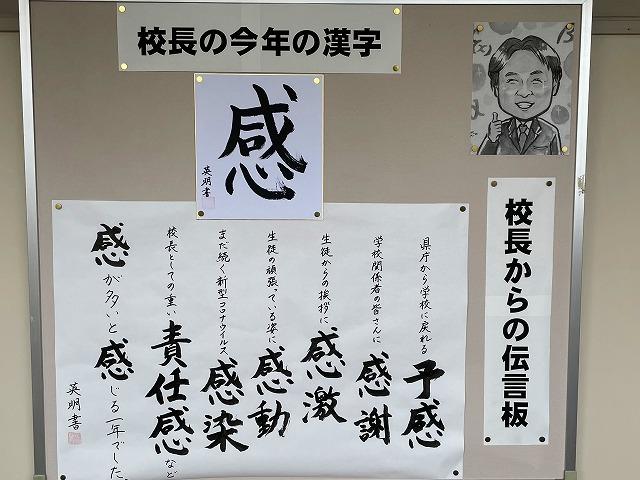 校長の今年の漢字
感
英明書
校長からの伝言板
県庁から学校に戻れる予感
学校関係者の皆さんに感謝
生徒からの挨拶に感激
生徒の頑張っている姿に感動
まだ続く新型コロナウイルス感染
校長としての重い責任感など
感が多いと感じる一年でした。
英明書